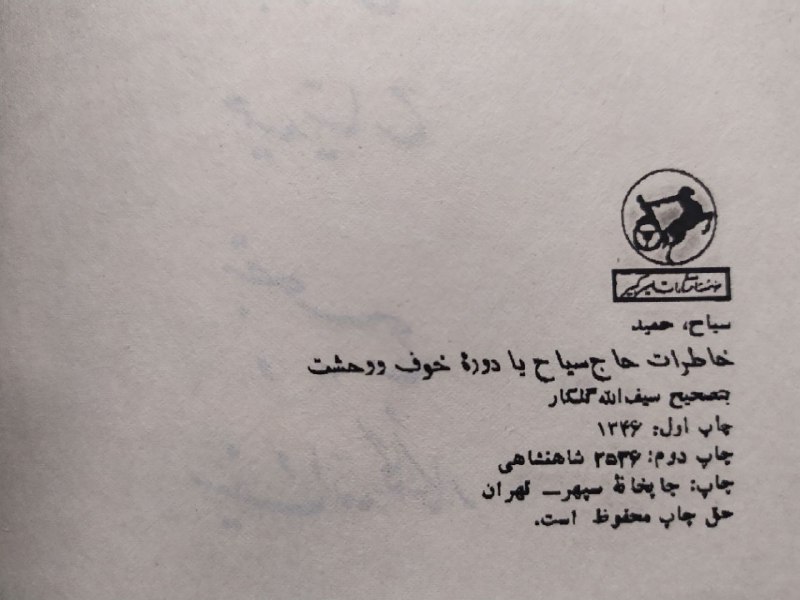 مؤسسه انتشارات امیرکبیر
سیاح، حمید
خاطرات حاج سیاح یا دورهٔ خوف ووحشت
بتصحیح سیف‌الله گلکار
چاپ اول: ۱۳۴۶
چاپ دوم: ۲۵۳۶ شاهنشاهی
چاپ: چاپخانهٔ سپهر – تهران
حق چاپ محفوظ است.